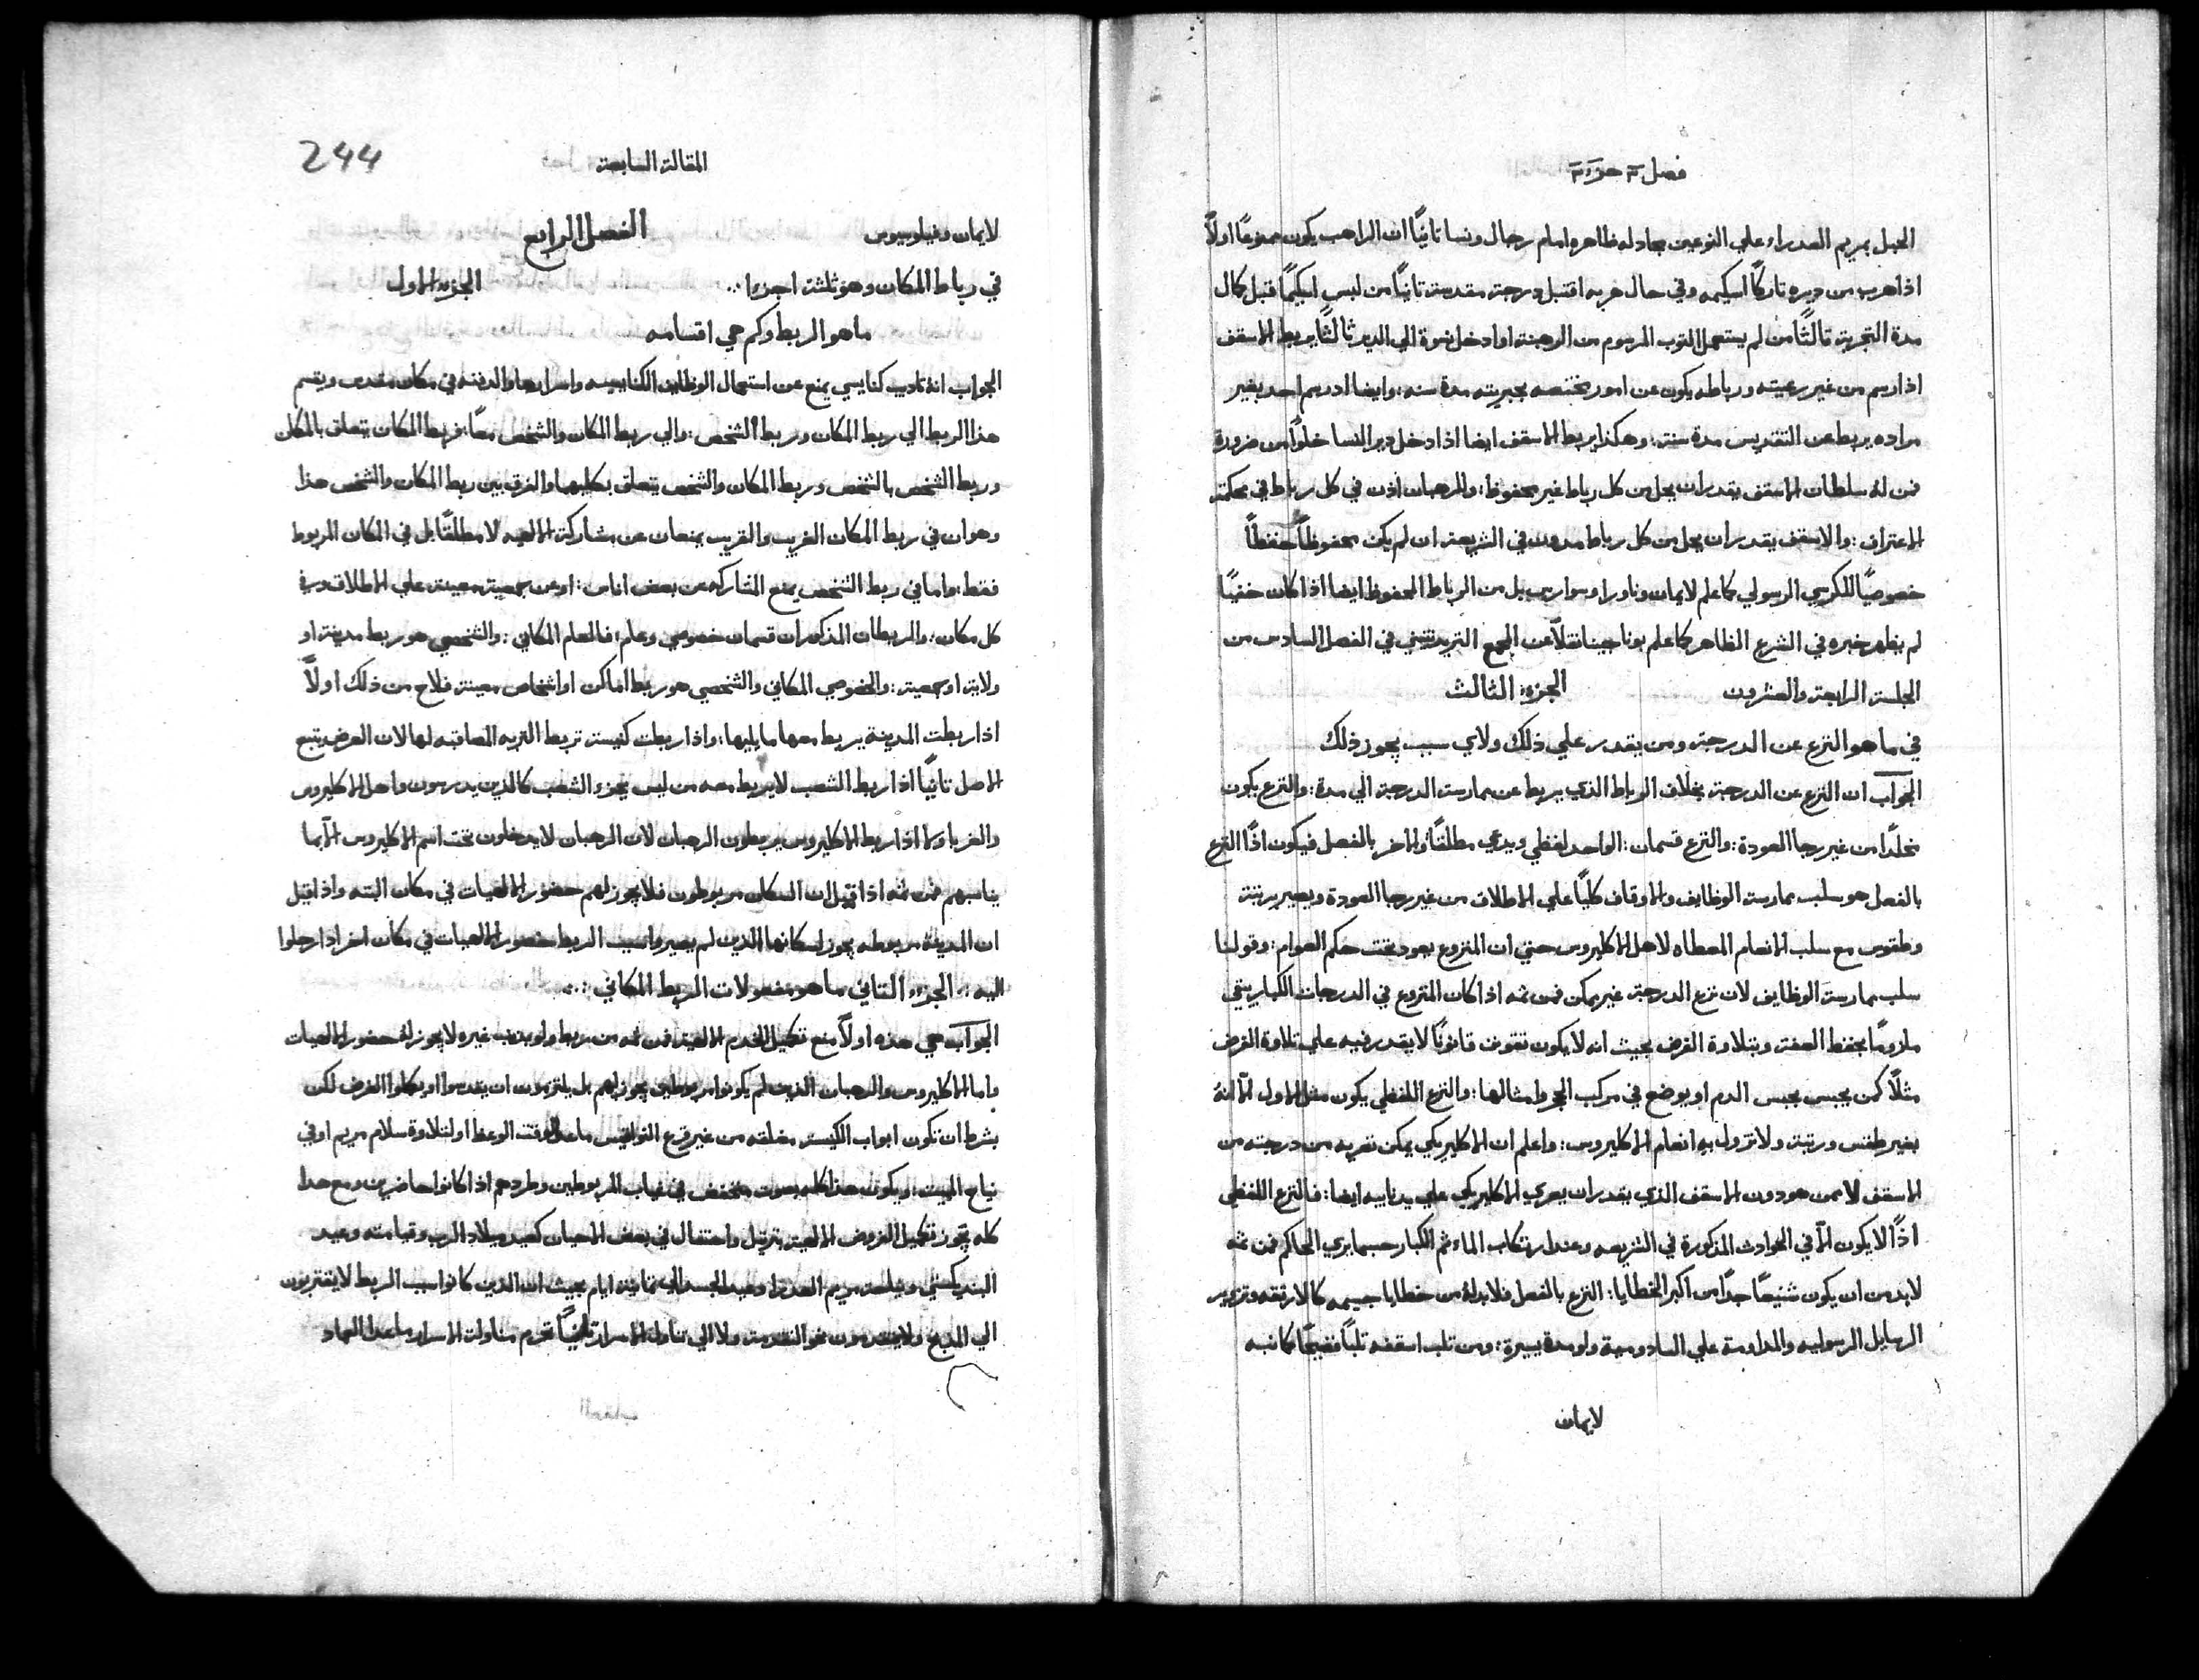 فصل ٣ جزء ٣
الحبل بمريم العدراء علي النوعين مجادله ظاهره امام رجال ونسا ثانيًا ان الراهب يكون ممنوعًا اولاً
اذا هرب من ديره تاركًا اسكيمه وفي حال هربه اقتبل درجة مقدسة ثانيًا من لبس اسكيمًا قبل كمال
مدة التجربة ثالثًا من لم يستعمل التوب المرسوم من الرهبنة او ادخل نسوة الي الدير ثالثًا يربط الاسقف
اذا رسم من غير رعيته ورباطه يكون عن امور مختصه بحبريته مدة سنه: وايضا اذ رسم احد بغير
مراده يربط عن التقديس مدة سنة: وهكذا يربط الاسقف ايضا اذا دخل دير النسا خلوًا من ضرورة
فمن له سلطان الاسقف يقدر ان يحل من كل رباط غير محفوظ: والرهبان اذن في كل رباط في محكمة
الاعتراف: والاسقف يقدر ان يحل من كل رباط مدون في الشريعة ان لم يكن محفوظًا حفظًا
خصوصيًا للكرسي الرسولي كما علم لايمان وناورا وسوارس بل من الرباط المحفوظ ايضا اذا كان خفيًا
لم يظهر خبره في الشرع الظاهر كما علم بوناجينا نقلاً عن المجمع التريدنتيني في الفصل السادس من
الجلسة الرابعة والعشرون الجزء الثالث
في ما هو النزع عن الدرجة ومن يقدر علي ذلك ولاي سبب يجوز ذلك
الجواب ان النزع عن الدرجة بخلاف الرباط الذي يربط عن ممارسة الدرجة الي مدة: والنزع يكون
مخلدًا من غير رجا العودة: والنزع قسمان: الواحد لفظي ويدعي مطلقًا والاخر بالفعل فيكون اذًا النزع
بالفعل هو سلب ممارسة الوظايف والاوقاف كليًا علي الاطلاق من غير رجا العودة ويصير برتبة
وطقوس مع سلب الانعام المعطاه لاهل الاكليروس حتي ان المنزوع يعود تحت حكم العوام: وقولنا
سلب ممارسة الوظايف لان نزع الدرجة غير يمكن فمن ثمه اذا كان المنزوع في الدرجات الكبار يبقي
ملزومًا بحفظ العفة وبتلاوة الفرض بحيث انه لا يكون تقوت قانونًا لا يقدر فيه علي تلاوة الفرض
مثلاً كمن يحبس بحبس الدم او يوضع في مركب الجر وامثالها: والنزع اللفظي يكون مثل الاول الا انه
بغير طقس ورتبة ولا تزول به انعام الاكليروس: واعلم ان الاكليريكي يمكن تعريه من درجته من
الاسقف لا ممن هو دون الاسقف الذي يقدر ان يعري الاكليريكي علي يد نايبه ايضا: فالنزع اللفظي
اذًا لا يكون الا في الحوادث المذكورة في الشريعه وعند ارتكاب الماثم الكبار حسبما يري الحاكم فمن ثمه
لا بد من ان يكون شنيعًا جدًا من اكبر الخطايا: النزع بالفعل فلا بد له من خطايا جسيمه كالارتقه وتزوير
الرسايل الرسوليه والمداومة علي السادومية ولو مدة يسيرة: ومن ثلب اسقفه ثلبًا فضيحًا كما نبه
لايمان
المقالة السابعة 244
لايمان وفيلوسيوس الفصل الرابع
في رباط المكان وهو ثلثة اجزوا الجزء الاول
ما هو الربط وكم هي اقسامه
الجواب انه تاديب كنايسي يمنع عن استعمال الوظايف الكنايسيه واسرارها والدفنه في مكان مقدس ويقسم
هذا الربط الي ربط المكان وربط الشخص: والي ربط المكان والشخص معًا: فربط المكان يتعلق بالمكان
وربط الشخص بالشخص وربط المكان والشخص يتعلق بكليهما والفرق بين ربط المكان والشخص هذا
وهو ان في ربط المكان الغريب والقريب يمنعان عن مشاركة الالهيه لا مطلقًا بل في المكان المربوط
فقط: واما في ربط الشخص يمنع المشاركه عن بعض اناس: او عن جمعية معينة علي الاطلاق وفي
كل مكان: والربطان المذكوران قسمان خصوصي وعام: فالعام المكاني: والشخصي هو ربط مدينة او
ولاية او جمعية: والخصوصي المكاني والشخصي هو ربط اماكن او اشخاص معينة فلاح من ذلك اولاً
اذا ربطت المدينة يربط معها ما يليها: واذا ربطت كنيسة تربط التربه المعاقبه لها لان الفرض يتبع
الاصل ثانيًا اذا ربط الشعب لا يربط معه من ليس بجزء الشعب كالذين يدرسون واهل الاكليروس
والغربا وكما اذا ربط الاكليروس يربطون الرهبان لان الرهبان لا يدخلون تحت اسم الاكليروس الا بما
يناسبهم فمن ثمه اذا قيل ان السكان مربوطون فلا يجوز لهم حضور الالهيات في مكان البته واذا قيل
ان المدينة مربوطه يجوز لسكانها الذين لم يصيروا سبب الربط حضور الالهيات في مكان اخر اذا رحلوا
اليه: الجزء الثاني ما هو مفعولات الربط المكاني
الجواب هي هذه اولاً منع تكميل الخدم الالهية فمن ثمه من ربط ولو بذنب غيره لا يجوز له حضور الالهيات
واما الاكليروس والرهبان الذين لم يكونوا مربوطين يجوز لهم بل يلتزمون ان يقدسوا او يكملوا الفرض لكن
بشرط ان تكون ابواب الكنيسة مغلقه من غير قرع النواقيس ما عدا لوقت الوعظ او لتلاوة سلام مريم او في
نياح الميت: ويكون هذا كله بصوت منخفض في غياب المربوطين وطردهم اذا كانوا حاضرين ومع هذا
كله يجوز تكميل الفروض الالهية بترتيل واحتفال في بعض الاحيان كعيد ميلاد الرب وقيامته وعيد
البنديكستي ونياحة مريم العدرا وعيد الجسد الي ثمانية ايام بحيث ان الذين كانوا سبب الربط لا يقتربون
الي المذبح ولا يتقدمون نحو التقدمة ولا الي تناول الاسرار ثانيًا تحرم مناولة الاسرار ما عدا العماد